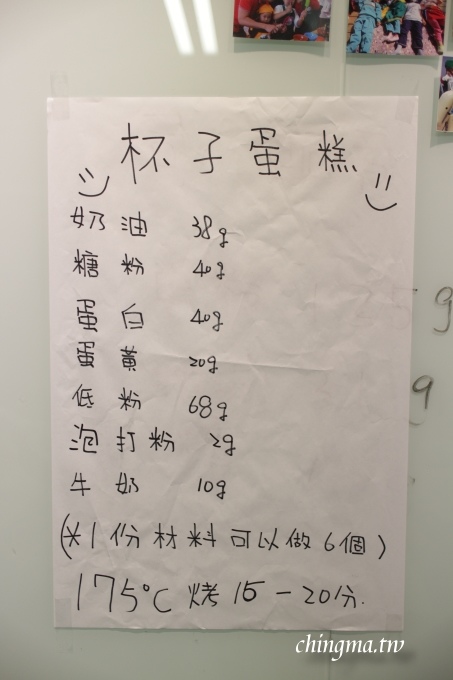 杯子蛋糕
奶油 38g
糖粉 40g
蛋白 40g
蛋黃 20g
低粉 68g
泡打粉 2g
牛奶 10g
(*1份材料可以做6個)
175℃ 烤 15-20分.
g
g
chingma.tw